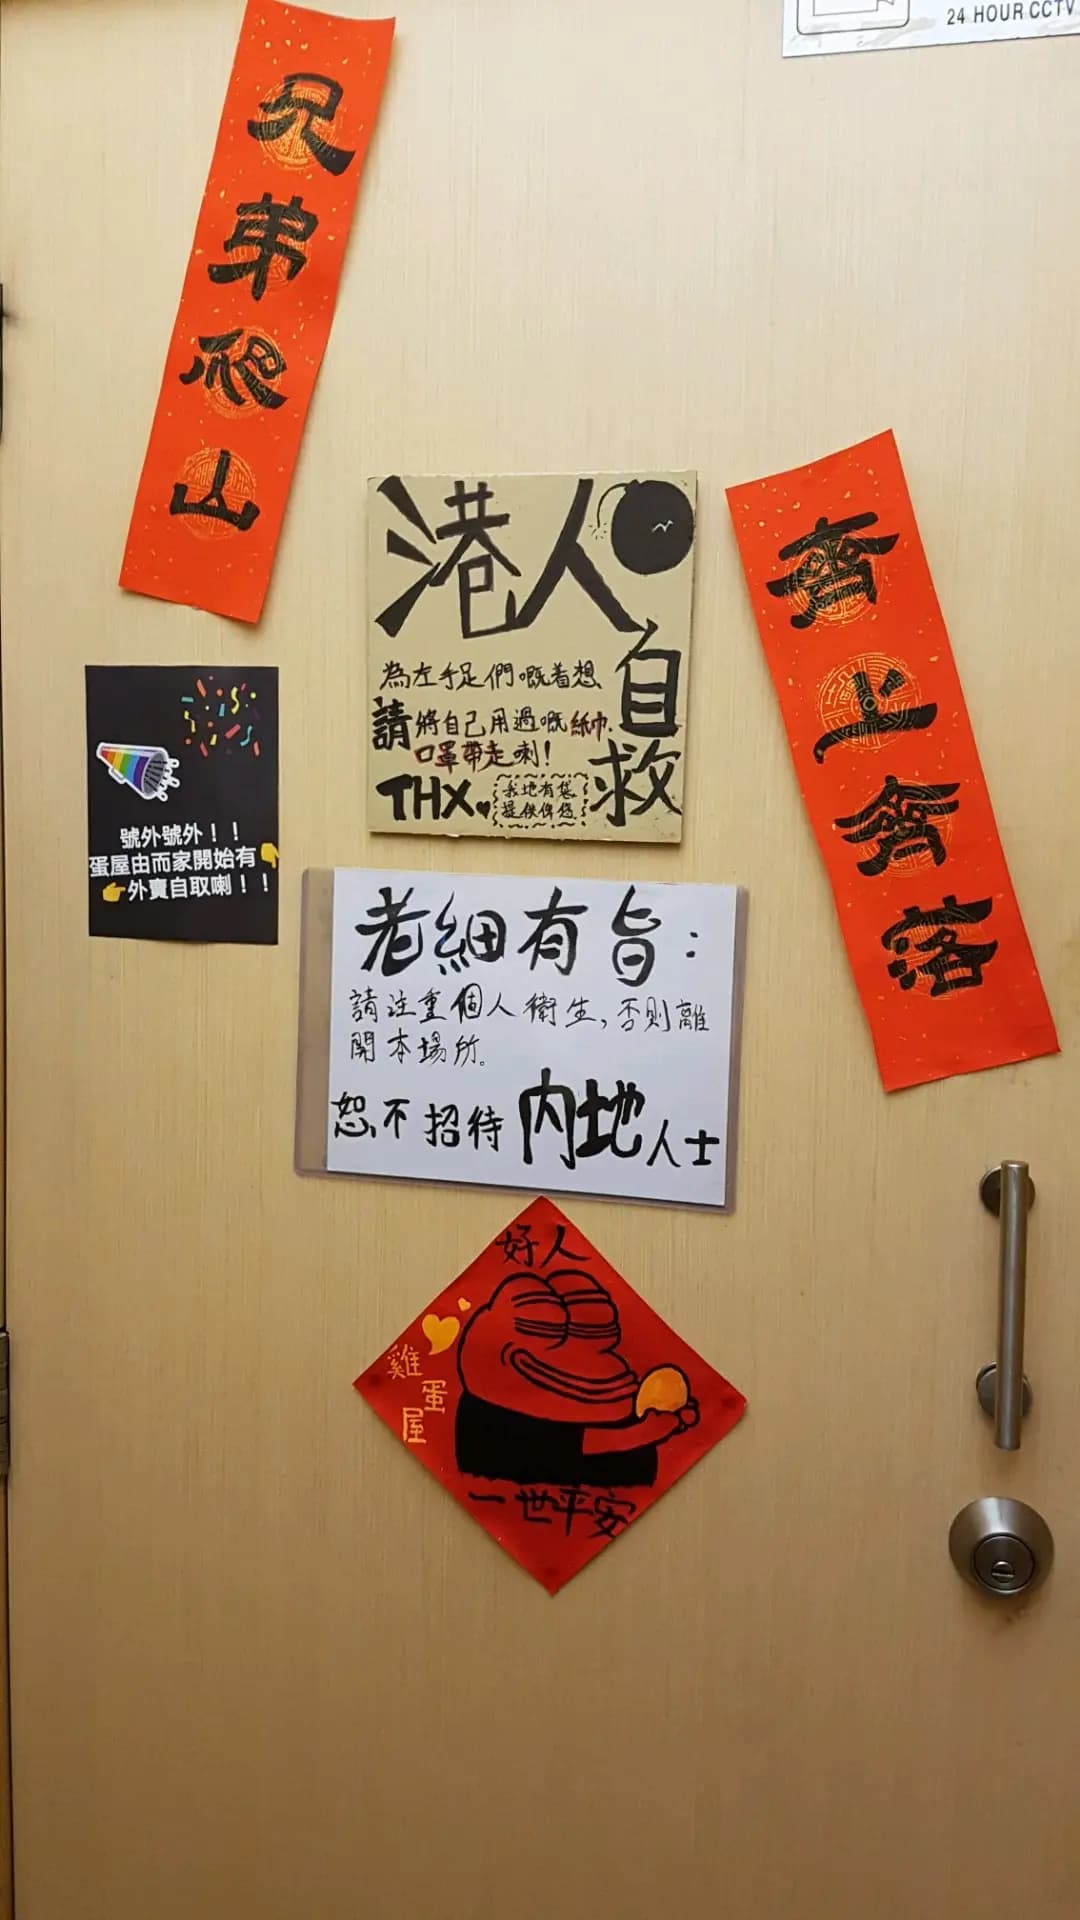 24 HOUR CCTV
兄弟爬山
齊上齊落
港人自救
為左手足們嘅着想
請將自己用過嘅紙巾、
口罩帶走喇!
THX
我地有袋
提供俾您
號外號外!!
蛋屋由而家開始有👇
👉外賣自取喇!!
老細有旨:
請注重個人衛生,否則離
開本場所。
恕不招待內地人士
好人
雞蛋屋
一世平安